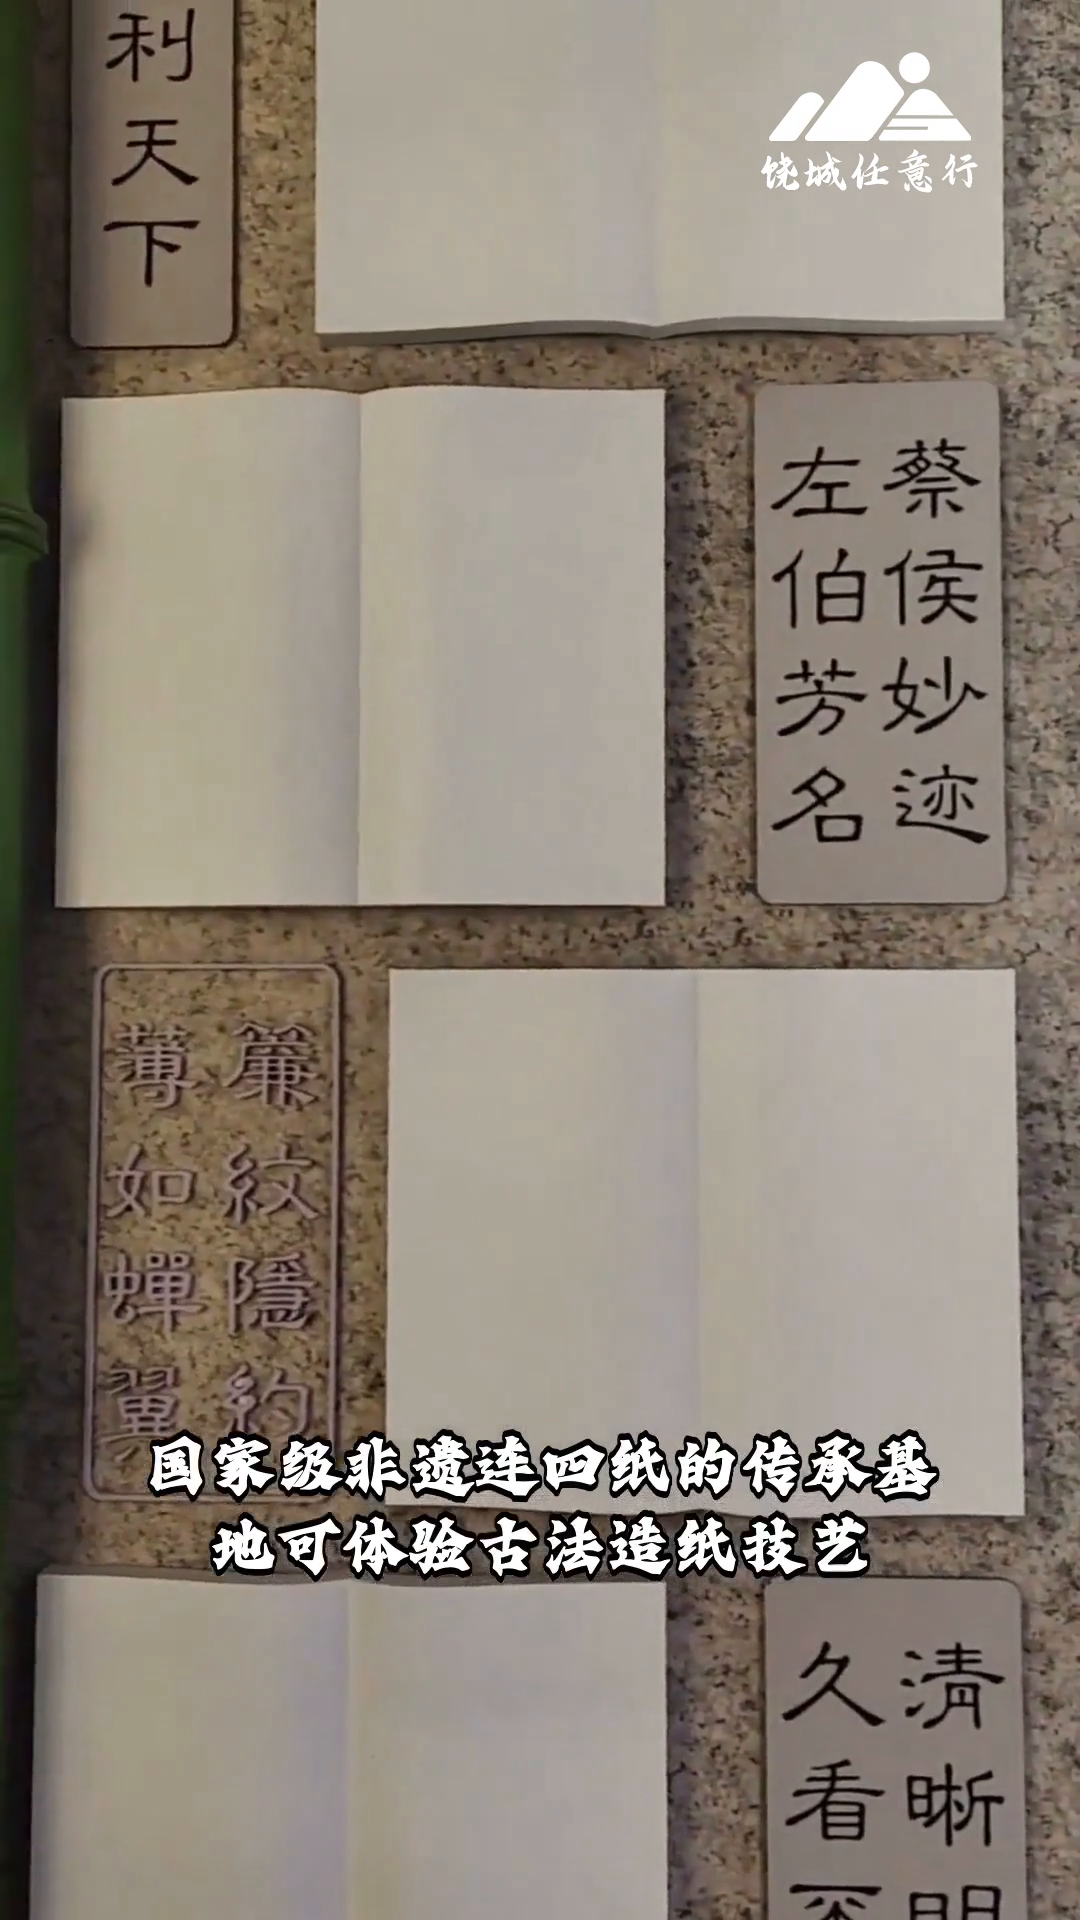 利天下
饶城任意行
蔡侯妙迹
左伯芳名
簾紋隱約
薄如蟬翼
国家级非遗连四纸的传承基
地可体验古法造纸技艺
清晰明
久看不